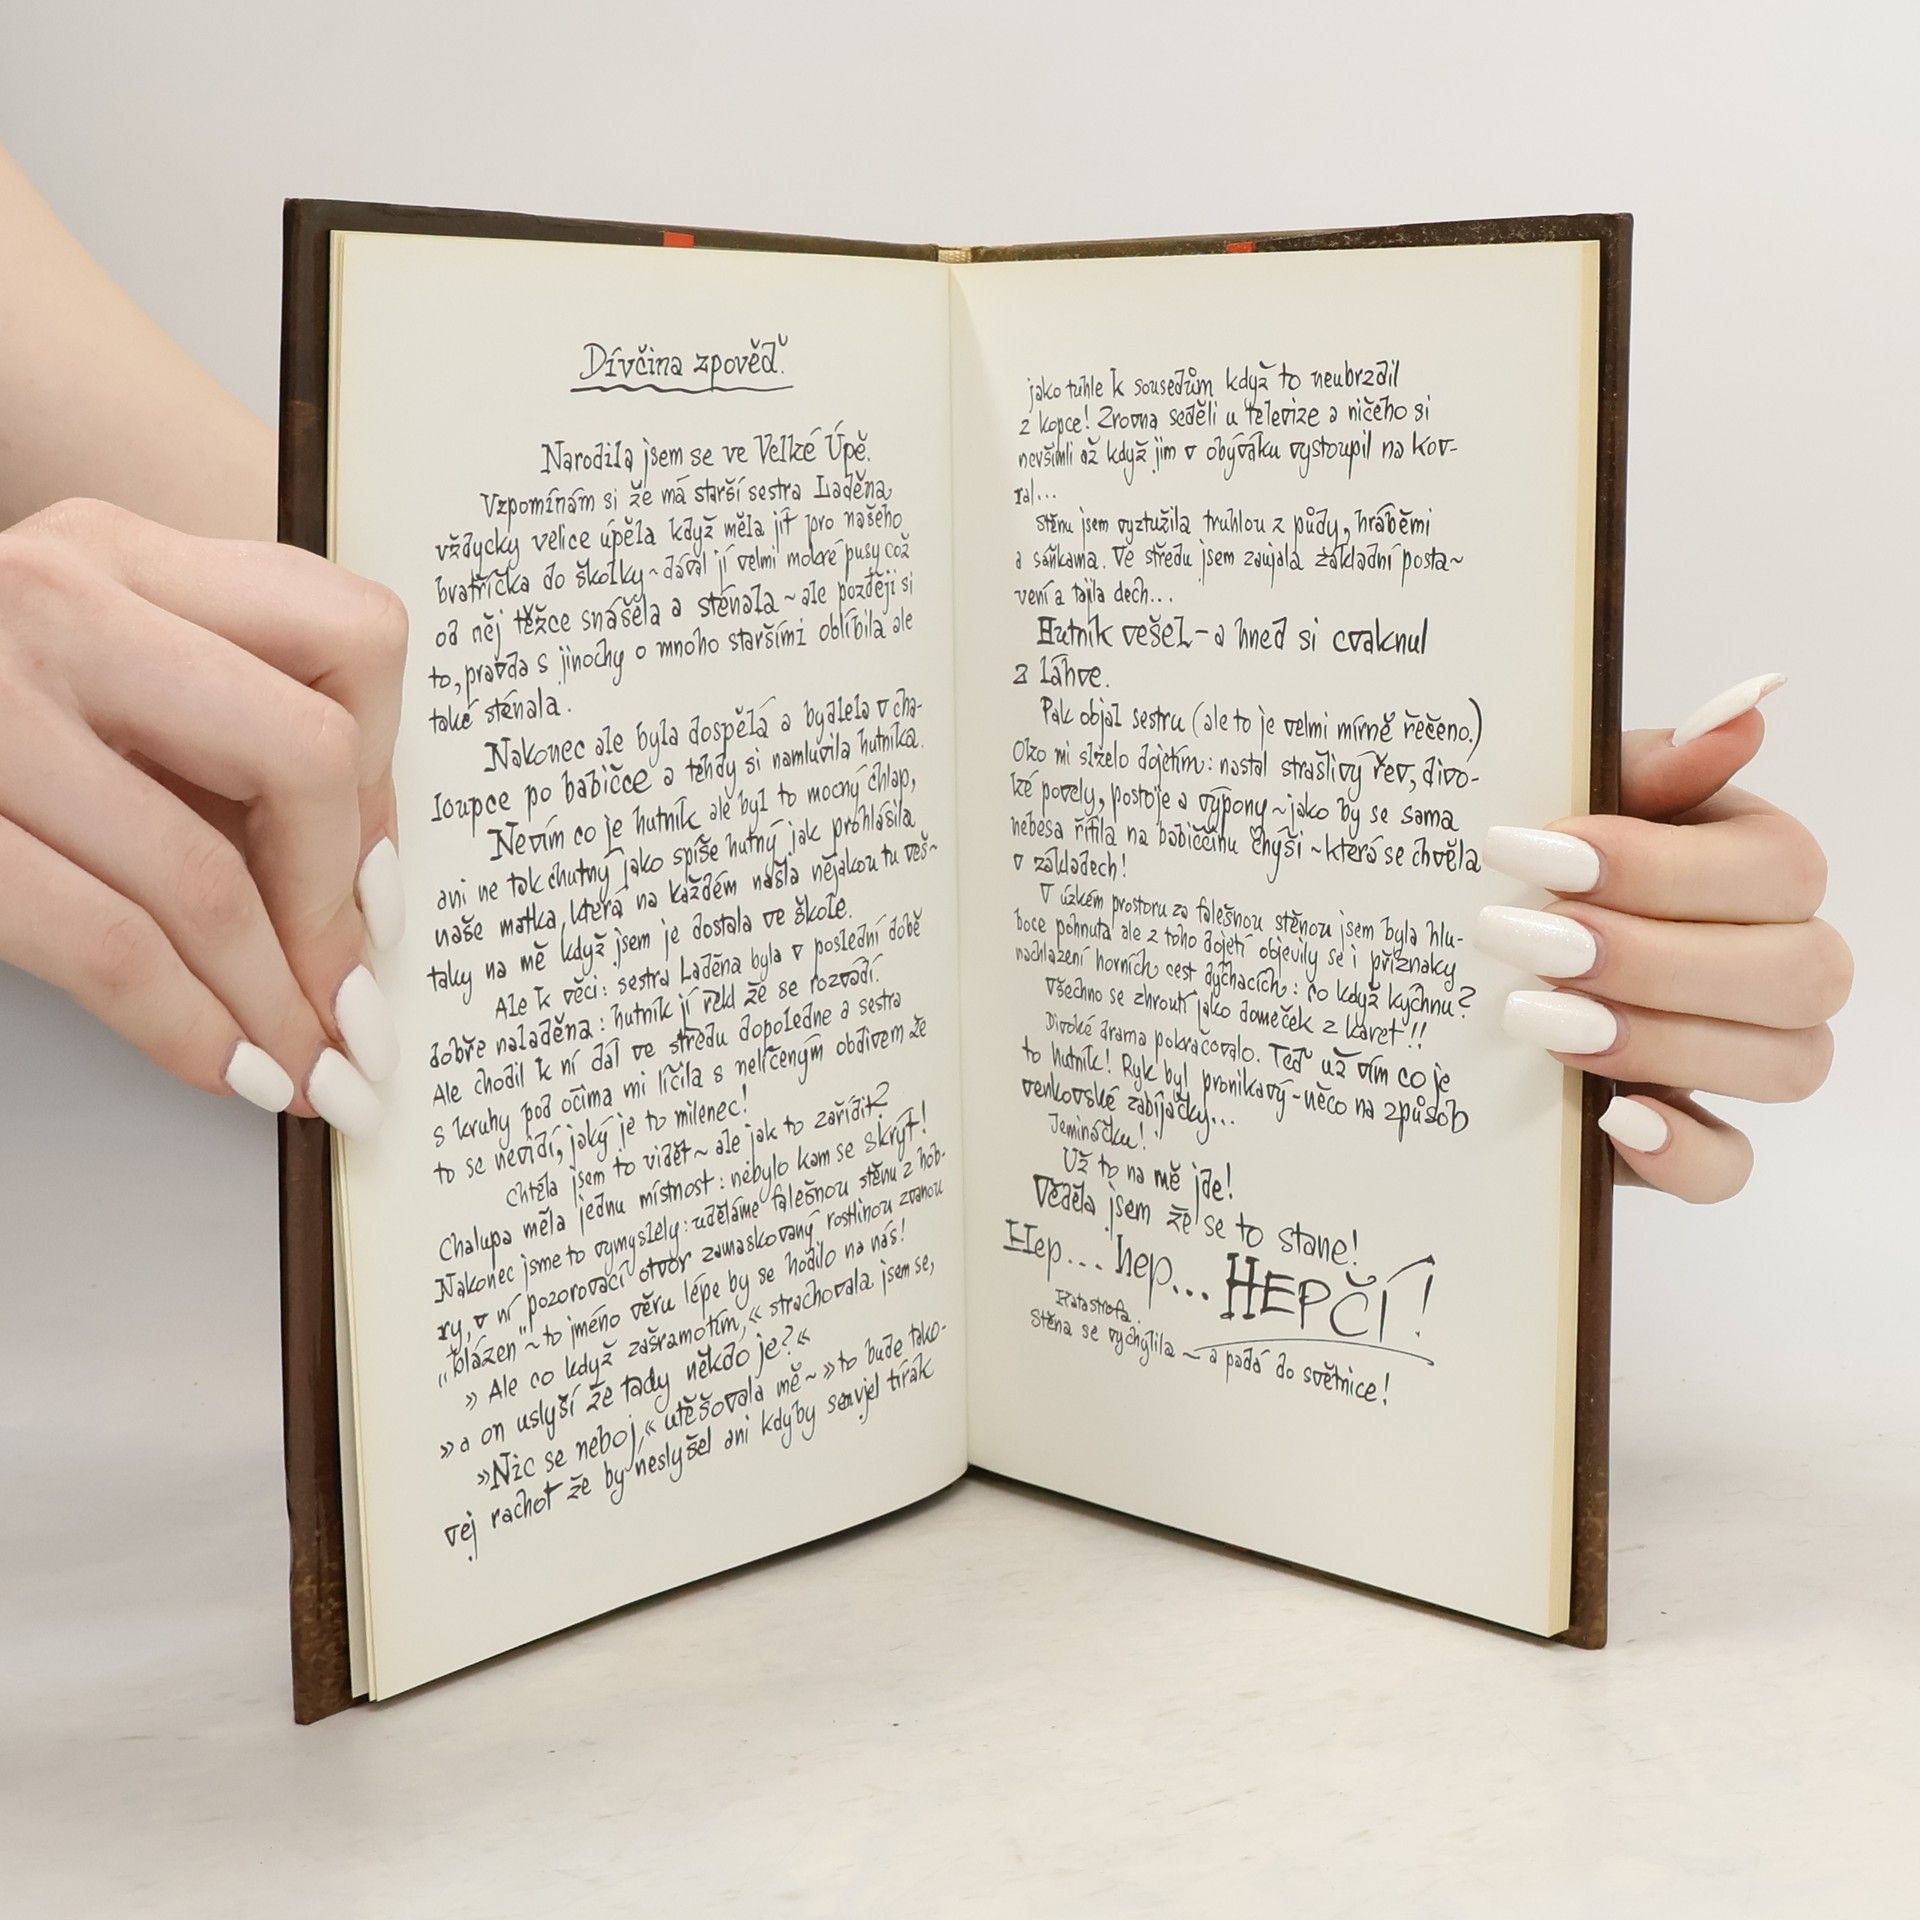 Dívčina zpověď.
Narodila jsem se ve Velké Úpě.
Vzpomínám si že má starší sestra Laděna
vždycky velice úpěla když měla jít pro našeho
bratříčka do školky ~ dával jí velmi mokré pusy což
od něj těžce snášela a sténala ~ ale později si
to, pravda s jinochy o mnoho staršími oblíbila ale
také sténala.
Nakonec ale byla dospělá a bydlela v cha-
loupce po babičce a tehdy si namluvila hutníka.
Nevím co je hutník ale byl to mocný chlap,
ani ne tak chutný jako spíše hutný jak prohlásila
naše matka, která na každém našla nějakou tu veš~
taky na mě když jsem je dostala ve škole.
Ale k věci: sestra Laděna byla v poslední době
dobře naladěna: hutník jí řekl že se rozvádí.
Ale chodil k ní dál ve středu dopoledne a sestra
s kruhy pod očima mi líčila s nelíčeným obdivem že
to se nevidí, jaký je to milenec!
Chtěla jsem to vidět ~ ale jak to zařídit?
Chalupa měla jednu místnost: nebylo kam se skrýt!
Nakonec jsme to vymyslely: uděláme falešnou stěnu z hob-
ry, v ní „pozorovací otvor zamaskovaný rostlinou zvanou
„blázen ~ to jméno věru lépe by se hodilo na nás!
» Ale co když zašramotím,« strachovala jsem se,
» a on uslyší že tady někdo je?«
»Nic se neboj,« utěšovala mě ~ » to bude tako-
vej rachot že by neslyšel ani kdyby semvjel tirák
jako tuhle k sousedům když to neubrzdil
z kopce! Zrovna seděli u televize a ničeho si
nevšimli až když jim v obýváku vystoupil na kov-
ral...
Stěnu jsem vyztužila truhlou z půdy, hráběmi
a sáňkama. Ve středu jsem zaujala základní posta~
vení a tajila dech...
Hutník vešel – a hned si cvaknul
z láhve.
Pak objal sestru (ale to je velmi mírně řečeno.)
Oko mi slzelo dojetím: nastal strašlivý řev, divo-
ké povely, postoje a výpony ~ jako by se sama
nebesa řítila na babiččinu chýši ~ která se chvěla
v základech!
V úzkém prostoru za falešnou stěnou jsem byla hlu-
boce pohnuta ale z toho dojetí objevily se i příznaky
nachlazení horních cest dýchacích: co když kýchnu?
Všechno se zhroutí jako domeček z karet!!
Divoké drama pokračovalo. Teď už vím co je
to hutník! Ryk byl pronikavý – něco na způsob
venkovské zabíjačky...
Jemináčku!
Už to na mě jde!
Věděla jsem že se to stane!
Hep... hep... HEPČÍ!
Katastrofa.
Stěna se vychýlila ~ a padá do světnice!